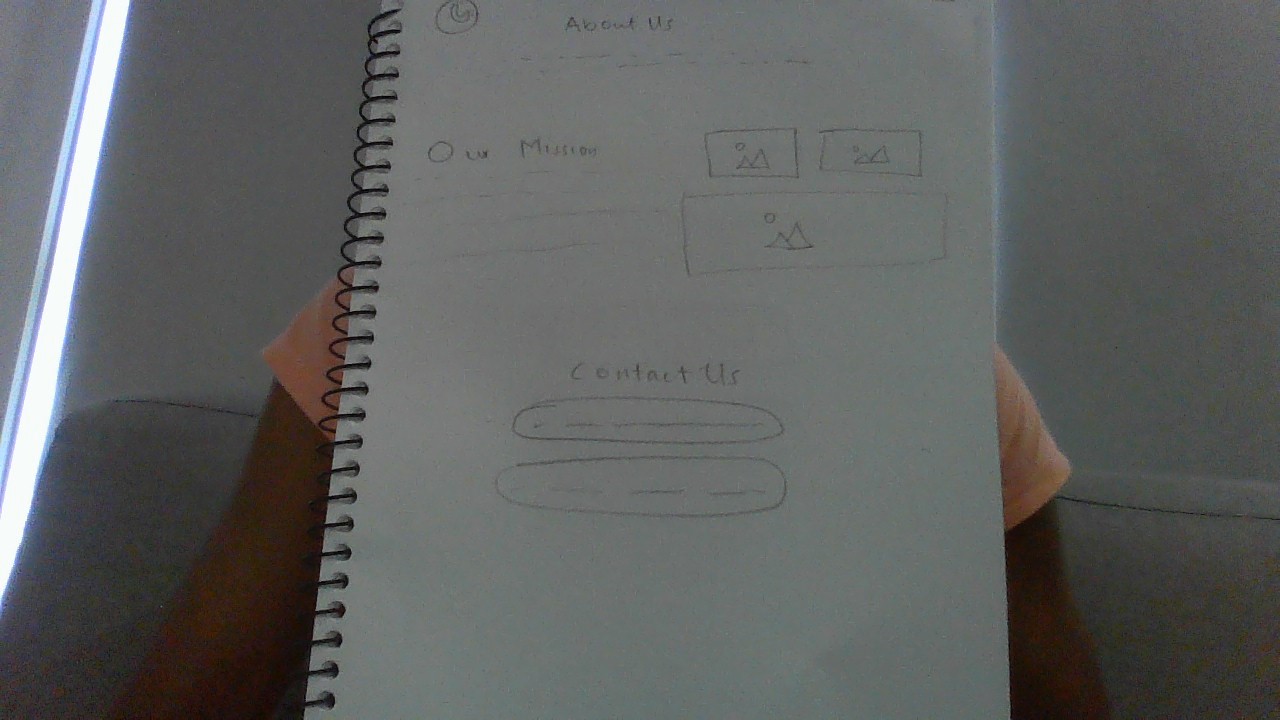 About Us
Our Mission
Contact Us